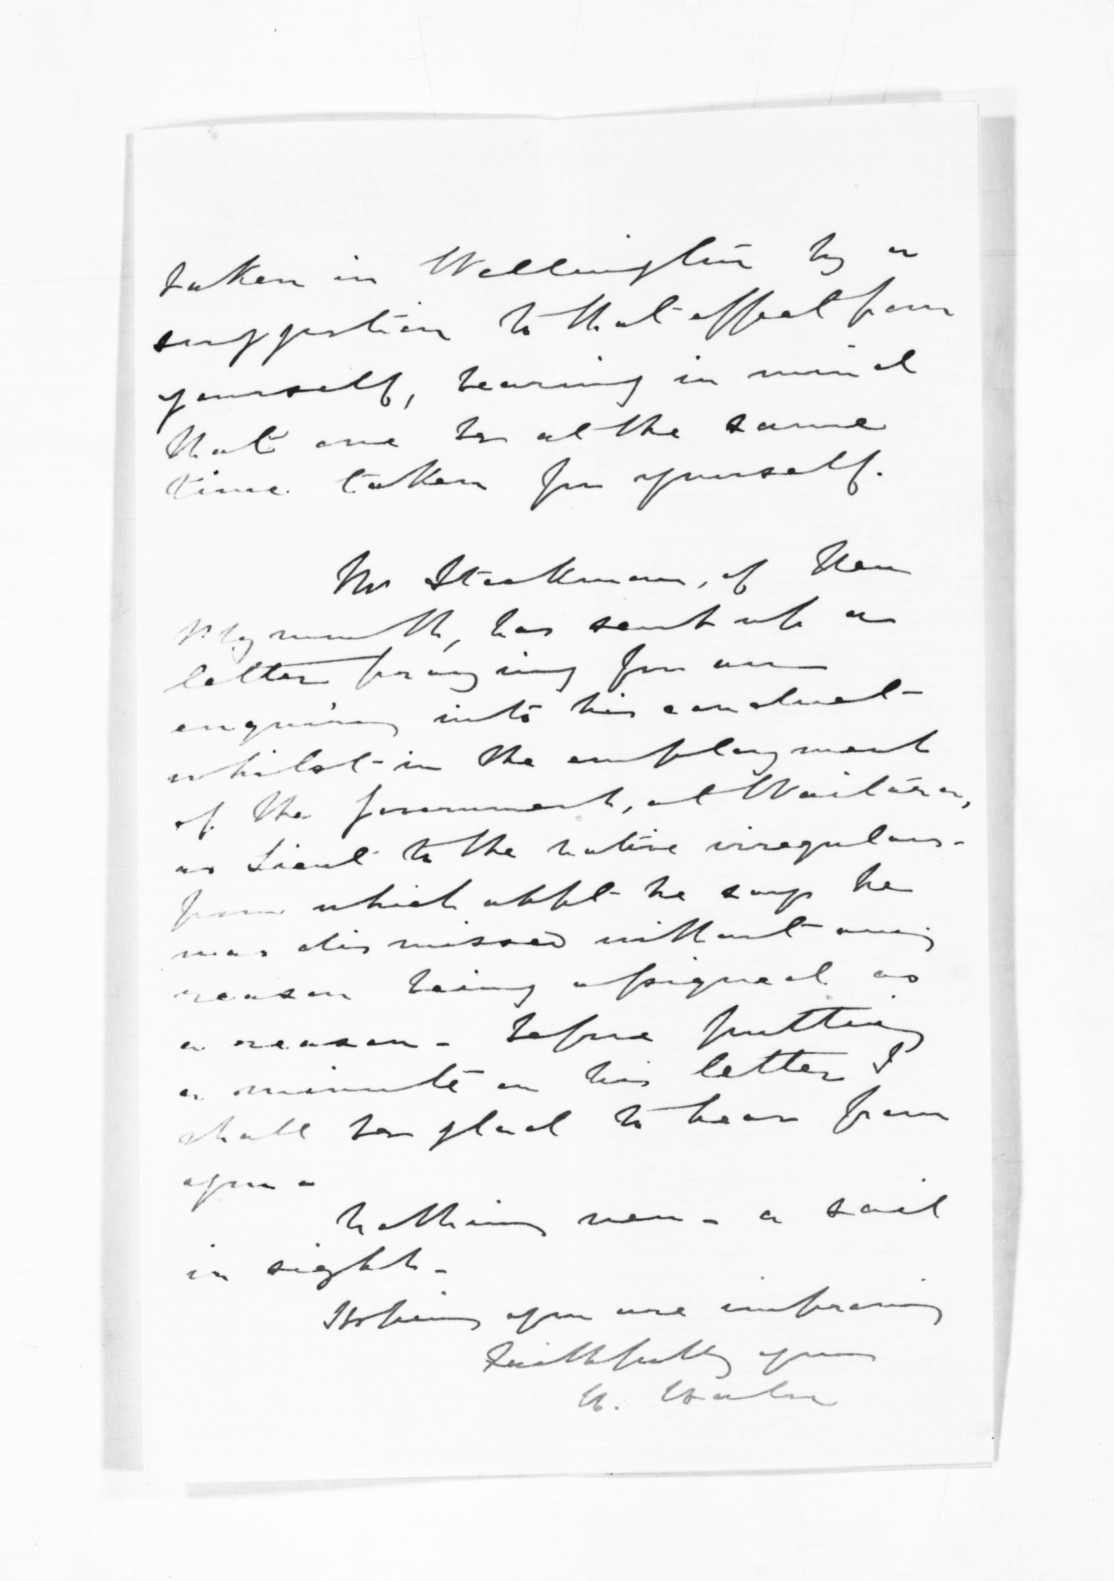 taken in Wellington by a
suggestion to that effect from
yourself, bearing in mind
that one be at the same
time taken for yourself.
Mr Stockman, of New
Plymouth, has sent up a
letter praying for an
enquiry into his conduct
whilst in the employment
of the Government, at Waitara,
as Lieut to the native irregulars -
from which appt he says he
was dismissed without any
reason being assigned as
a reason - before putting
a minute on his letter I
shall be glad to hear from
you -
Nothing new - a sail
in sight -
Hoping you are improving
Faithfully yours
H. Halse